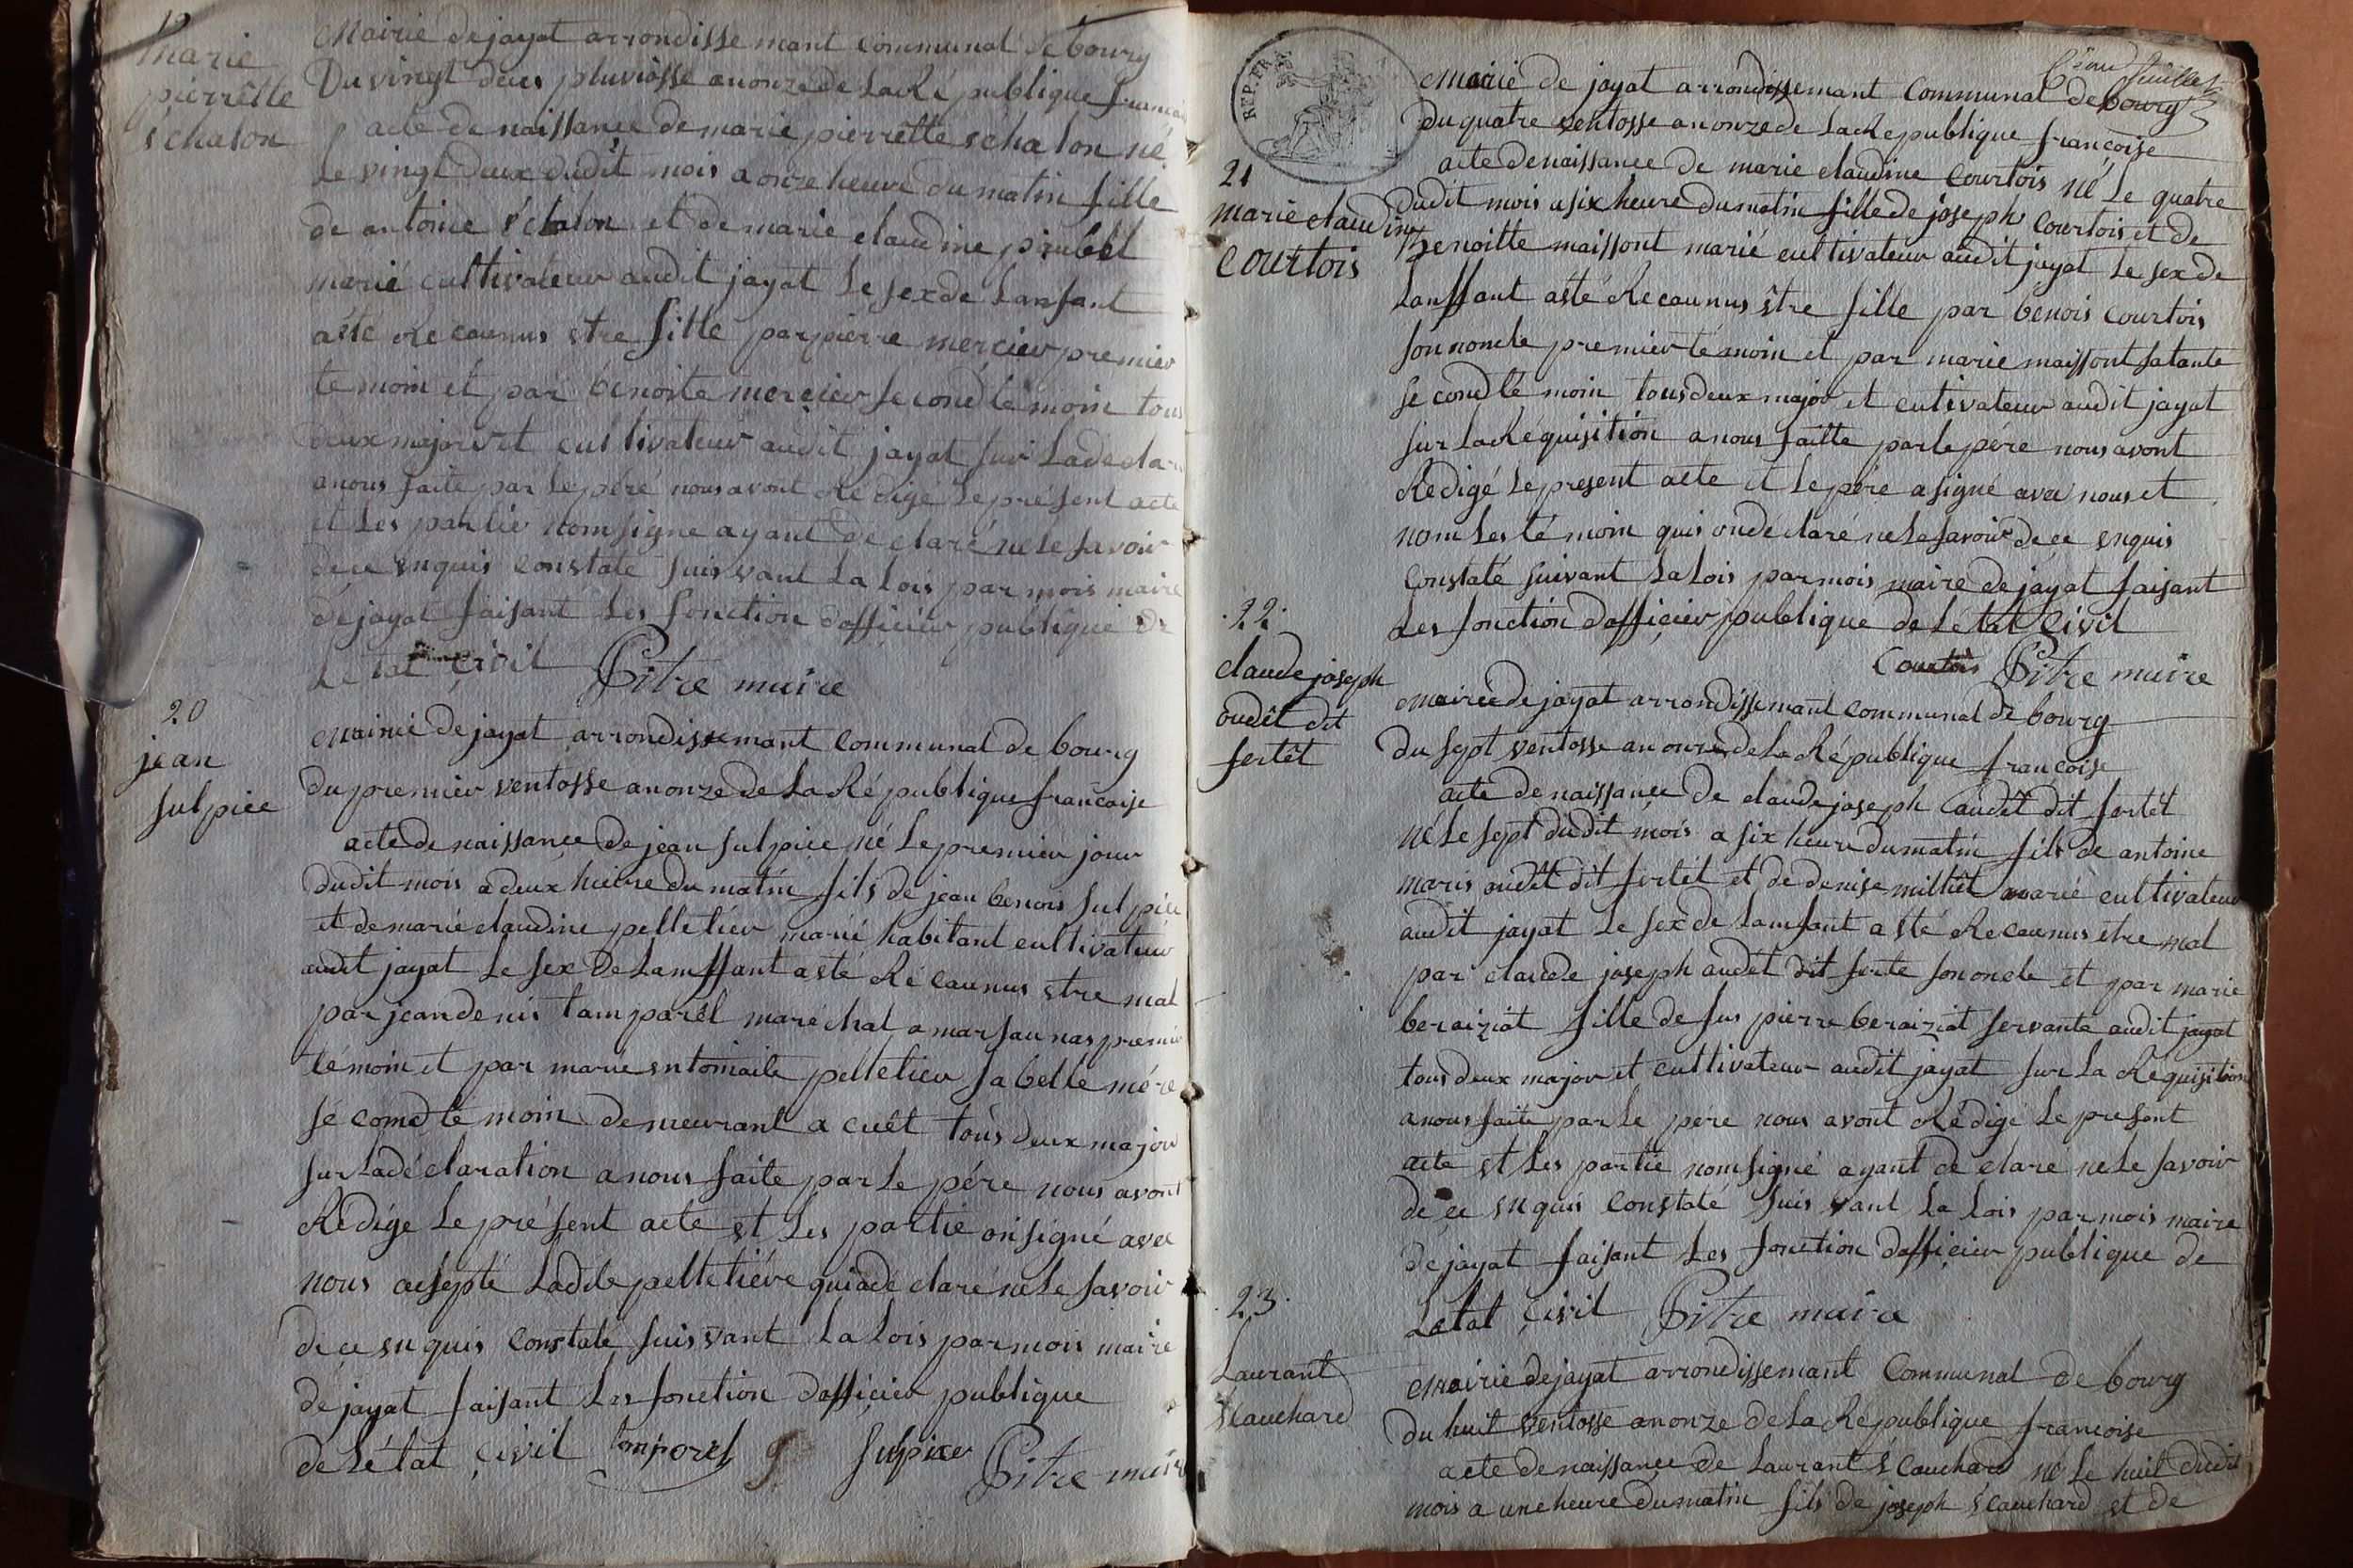 19
marie
pierrêtte
schalon
Mairie dejayat arrondissemant communal de bourg
Du vingt deux pluviôsse anonze de La Ré publique francai
acte de naissance de marie pierrêtte schalon né
Le vingt deux dudit mois a onze heure du matin fille
de antoine schalon et de marie claudine pirubel
marié cultivateur audit jayat Le sexde Lanfant
asté Recaunus stre fille parpierre mercier premier
te moin et par benoite mercier se cond té moin tous
deux major et cultivateur audit jayat sur Ladécla
anous faite par Lepére nousavont Rédigé Leprésent acte
et Les partie nomsigne ayant dé claré neLe savoir
dece snquis constaté suisvant La Lois par mois maire
de jayat faisant Les fonction dofficier publique de
Le tat civil Pitre maire
20
jean
sulpice
Mairie de jayat arrondissemant communal de bourg
du premier ventosse anonze de La Ré publique francaise
acte de naissance de jean sulpice né Lepremier jour
dudit mois adeux heure du matin fils de jean benois sulpice
et de marie claudine pelletier marié habitant cultivateur
audit jayat Le sex de Lamffant asté Ré caunus stre mal
par jeandenis tamparêl maréchal a marsaunas premié
témoin et par marie entoniaite pelletier sa belle mére
sé comd té moin demeurant a cuêt tous deux major
sur Ladéclaration anous faite par Le pére nous avont
Rédigé Le présent acte st Les partie onsigné avec
nous acsepté Ladite pelletiére quiadé claré neLe savoir
de ce snquis constaté suisvant La Lois parmois maire
de jayat faisant Les fonction dofficier publique
de Létat civil tamporel Sulpice Pitre maire
REP. FRA
feuillet
Mairie de jayat arrondissemant communal de bourg
Du quatre ventosse anonze de La Republique françoise
acte denaissance de marie claudine courtois né Le quatre
21
marie claudine
courtois
dudit mois asix heure dumatin fille de joseph courtois et de
benoitte maissont marié cultivateur audit jayat Le sex de
Lanffant asté Recaunus stre fille par benois courtois
son noncle premier té moin et par marie maissont satante
se cond té moin tousdeux major et cultivateur audit jayat
sur La Réquisition anous faitte parlepére nous avont
Rédigé Leprésent acte et Lepére asigné avec nous et
nom Les té moin quis ondéclaré neLe savoir de ce snquis
constaté suivant La Lois parmois maire de jayat faisant
Les fonction dofficier publique de Létat civil
Courtois Pitre maire
.22.
claude joseph
oudêt dit
fertêt
Mairie de jayat arrondissemant communal de bourg
du sept ventosse anonze de La République francoise
acte de naissance de claude joseph audêt dit fertêt
né Le sept dudit mois a six heure dumatin fils de antoine
maris audêt dit fertêt et de denise milliêt marié cultivateur
audit jayat Le sex de Lamfant a sté Recaunus etre mal
par claude joseph audêt dit ferte sononcle et par marie
beraiziat fille de fus pierre beraiziat servante audit jayat
tous deux major et cultivateur audit jayat sur La Réquisition
anous faite par Le pére nous avont Rédigé Le present
acte st Les partie nomsigné ayant dé claré neLe savoir
de ce snquis constaté suis vant La Lois parmois maire
de jayat faisant Les fonction dofficier publique de
Letat civil Pitre maire
.23.
Laurant
scauchard
Mairie dejayat arrondissemant communal de bourg
du huit ventosse anonze de La Republique francoise
acte de naissance de Laurant scauchard né Le huit dudit
mois a une heure dumatin fils de joseph scauchard st de